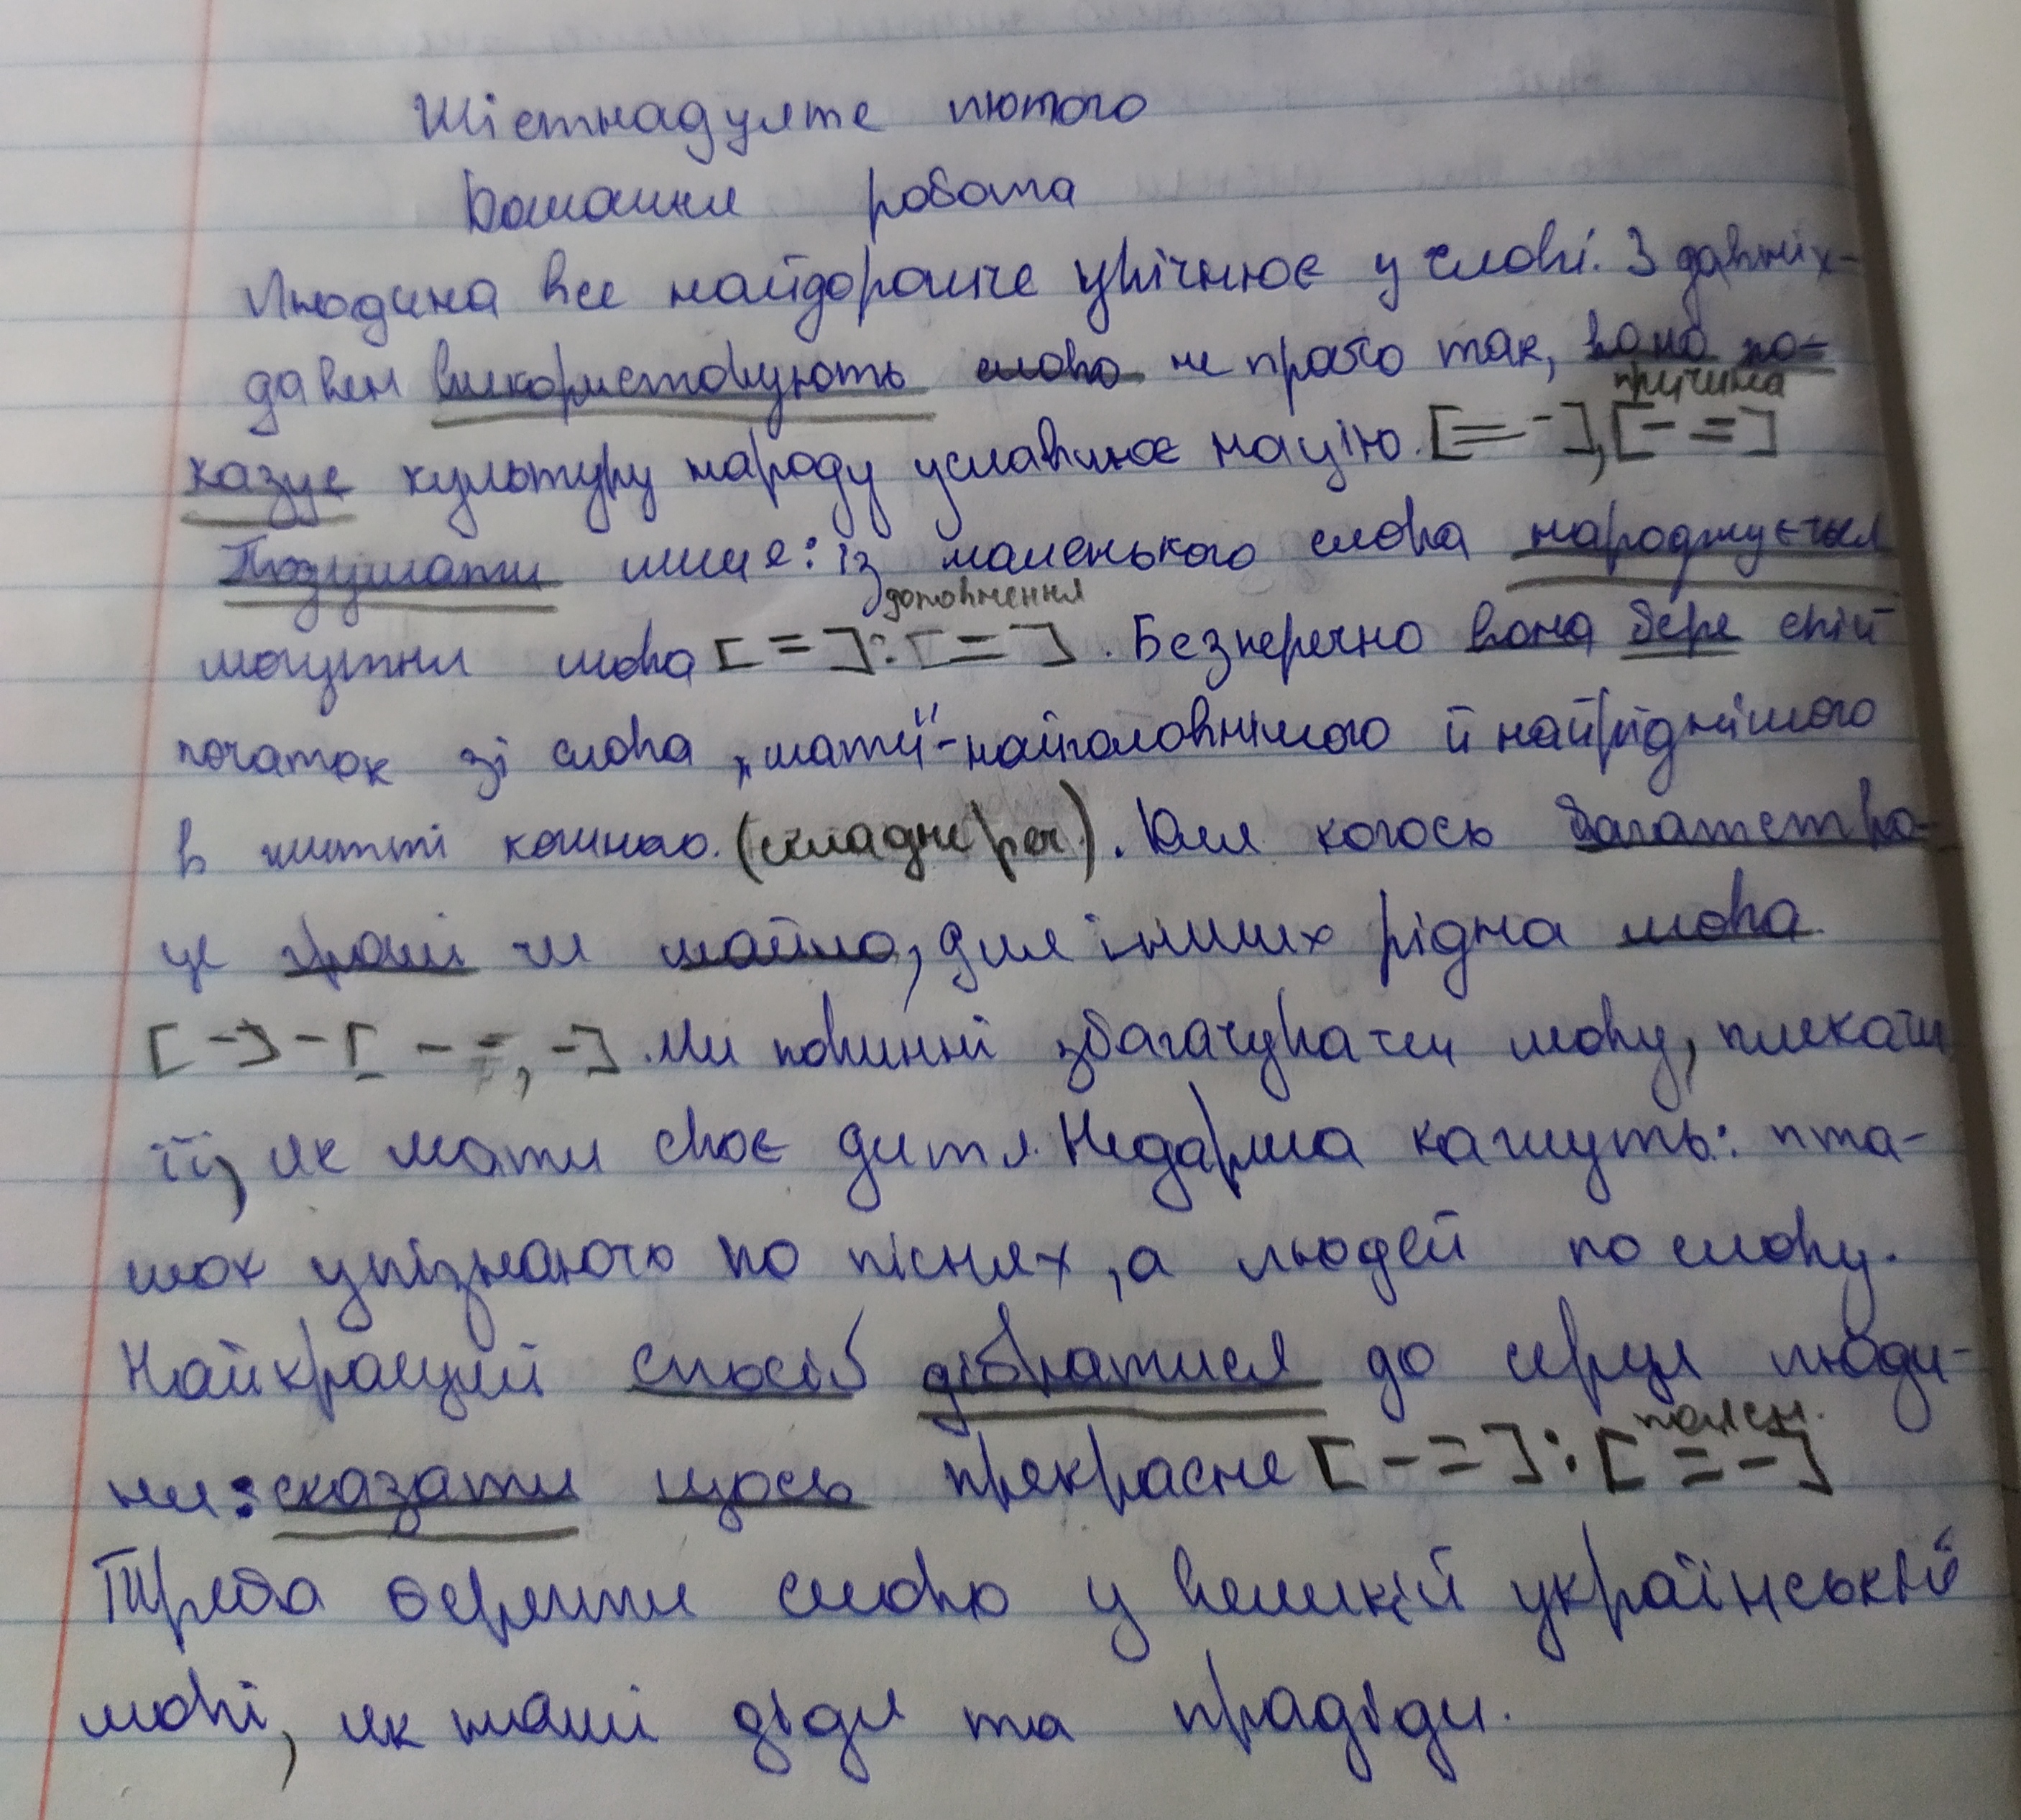 Шістнадцяте лютого
Домашня робота
Людина все найдорожче увічнює у слові. З давніх-
давен використовують слово не просто так, воно по-
причина
казує культуру народу уславлює націю. [= -], [- =]
Подумати лише: із маленького слова народжується
доповнення
могутня мова [=]: [=]. Безперечно вона бере свій
початок зі слова „мати" - найголовнішого й найріднішого
в житті кожного. (складне реч.). Для когось багатство-
це гроші чи майно, для інших рідна мова.
[-] - [- =, -] Ми повинні збагачувати мову, плекати
її, як мати своє дитя. Недарма кажуть: пта-
шок упізнають по піснях, а людей по слову.
Найкращий спосіб дібратися до серця люди-
поясн.
ни: сказати щось прекрасне [- =]: [= -]
Треба берегти слово у великій українській
мові, як наші діди та прадіди.